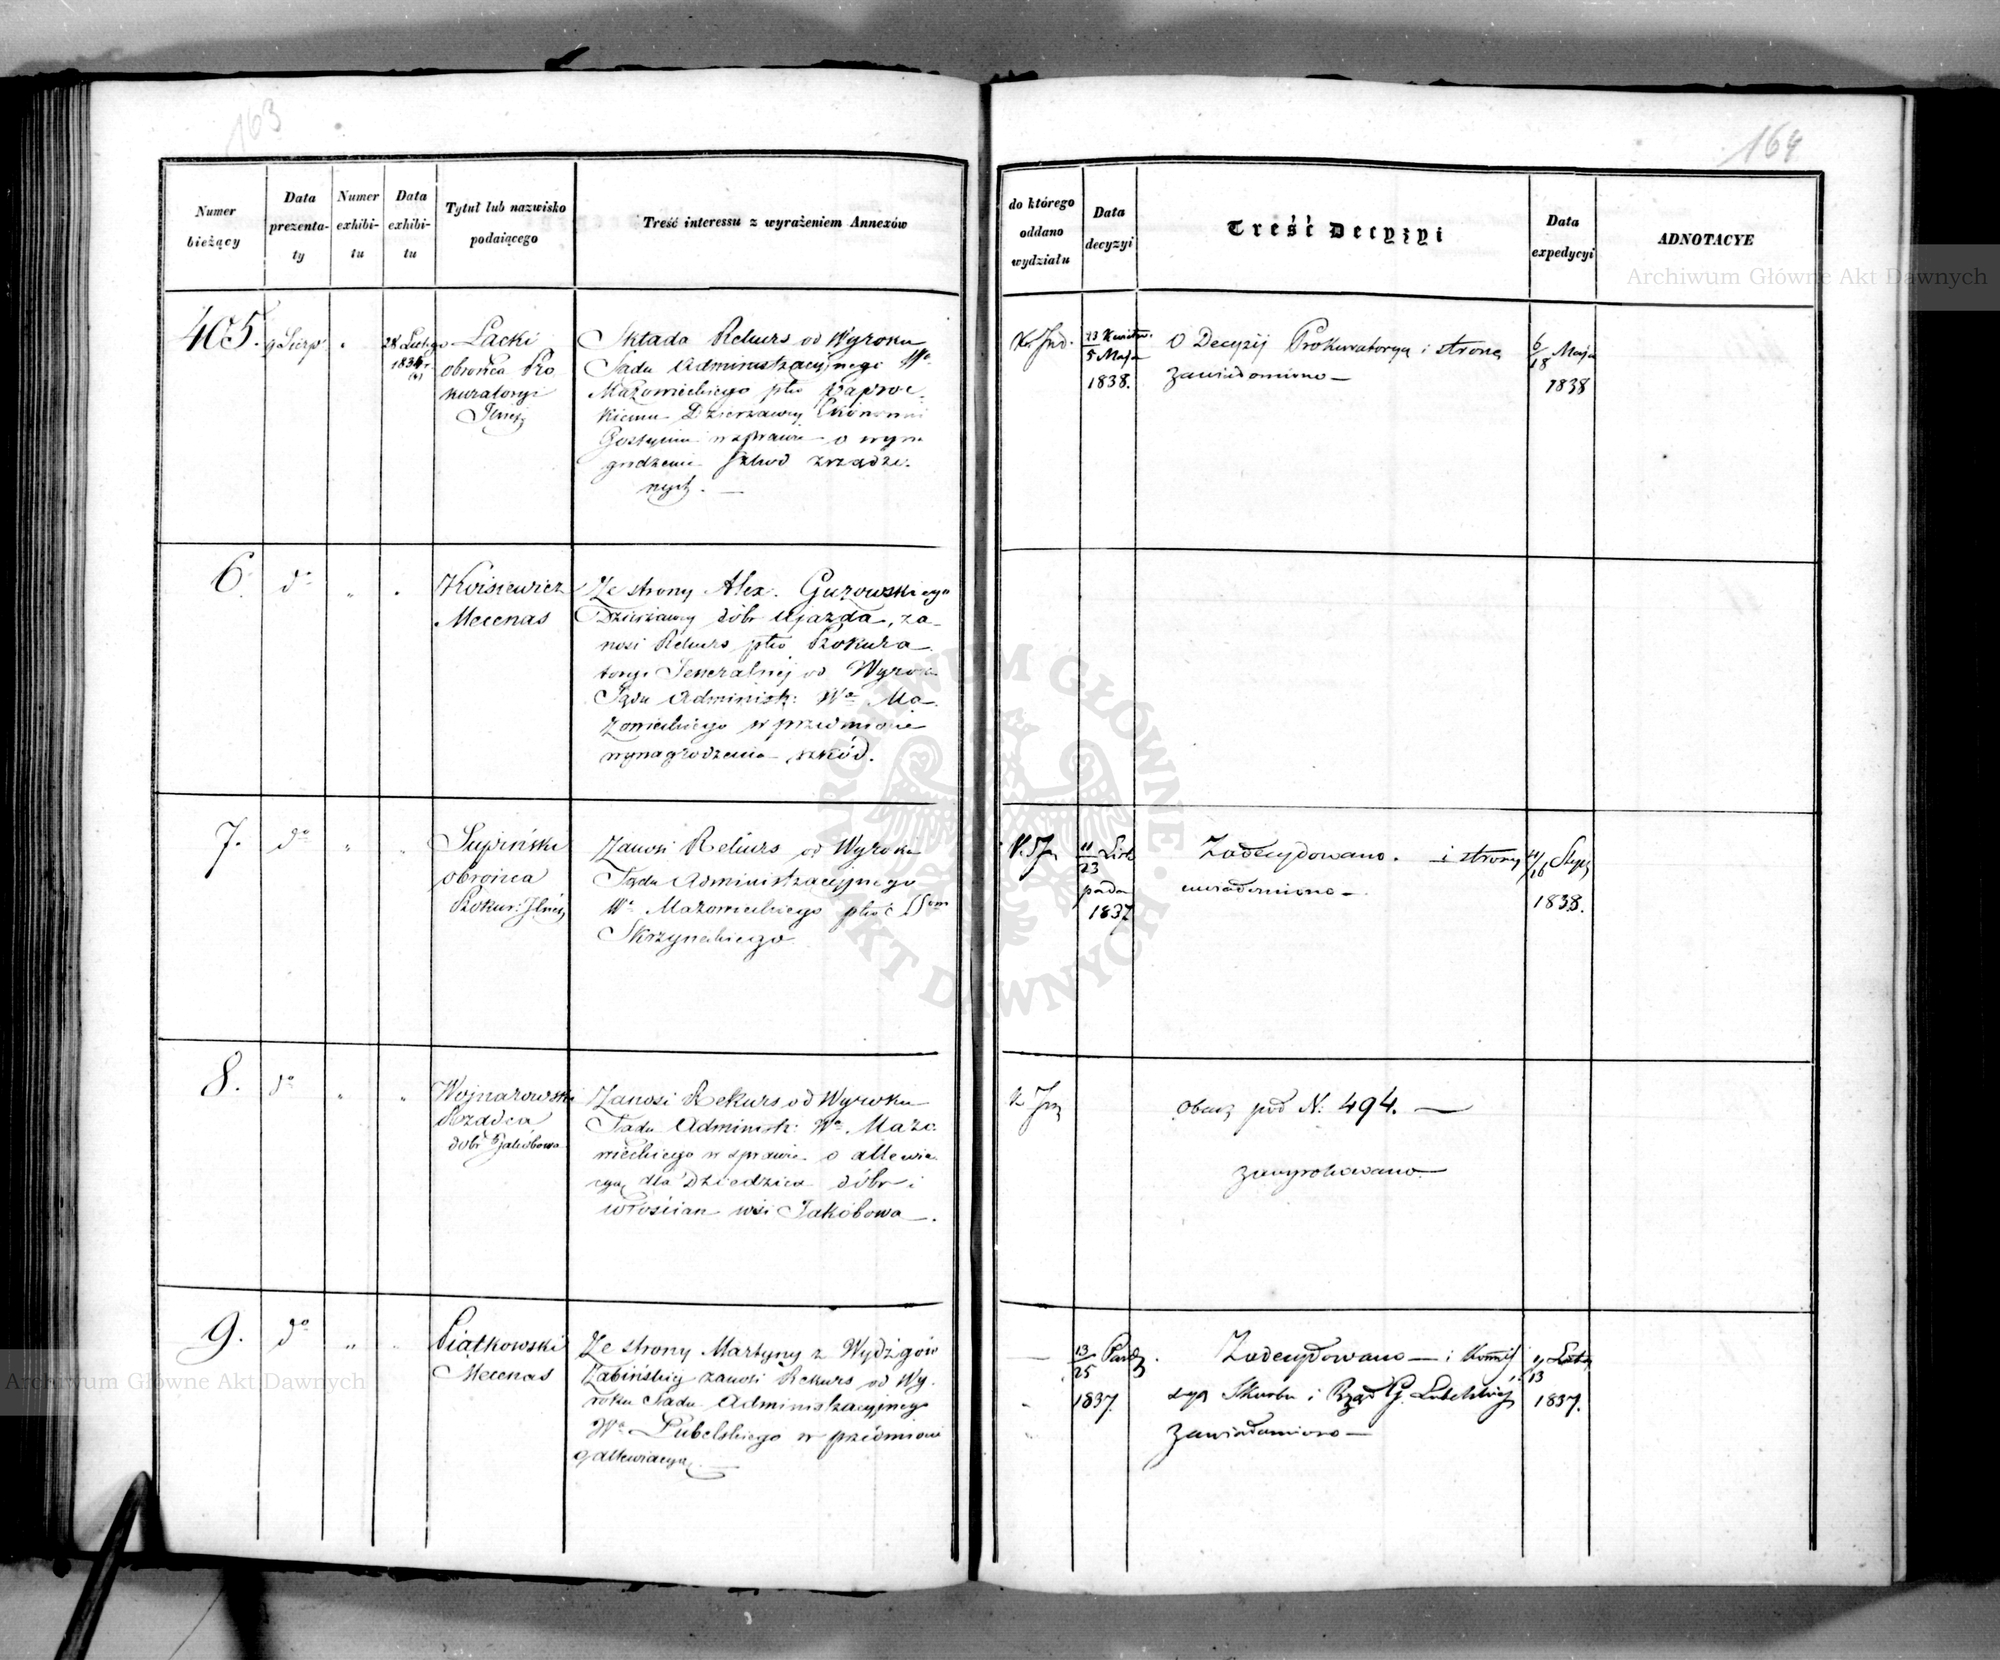 163
Numer bieżący
Data prezenta-ty
Numer exhibi-tu
Data exhibi-tu
Tytuł lub nazwisko podaiącego
Treść interessu z wyrażeniem Annexów
405.
9 Sierp
28 Lutego
Lacki
obrońca Pro
kuratoryi
Jlnej
Składa Rekurs od Wyroku
Sądu Administracyjnego Wa
Mazowieckiego pko Paproc
kiemu Dzierżawcy Ekonomii
Gostynin w sprawie o wyna
grodzenie szkód zrządzo
nych. —
6.
do
Koisiewicz
Mecenas
Ze strony Alex. Gurowskiego
Dzierżawcy dóbr Ujazda, za-
nosi Rekurs pko Prokura
toryi Jeneralnej od Wyroku
Sądu Administr: Wa Ma
zowieckiego w przedmiocie
wynagrodzenia szkód.
7.
do
Supiński
obrońca
Prokur: Jlnej
Zanosi Rekurs od Wyroku
Sądu Administracyjnego
Wa Mazowieckiego pko
Skrzyneckiego
8.
do
Wojnarowski
Rządca
dóbr Jakóbowa
Zanosi Rekurs od Wyroku
Sądu Administr: Wa Mazo
wieckiego w sprawie o allewia
cyą dla Dziedzica dóbr i
włościan wsi Jakóbowa.
9.
do
Piątkowski
Mecenas
Ze strony Martyny z Wydżgów
Żabińskiej zanosi Rekurs od Wy
roku Sądu Administracyjnego
Wa Lubelskiego w przedmiocie
allewiacyi. —
164
do którego oddano wydziału
Data decyzyi
Treść Decyzyi
Data expedycyi
ADNOTACYE
23 Kwietn.
5 Maja
1838.
O Decyzij Prokuratorya i strona
zawiadomiono —
6/18 Maja
1838
11/23 Listo
pada
1837
Zadecydowano. i strony
zawiadomiono —
1838.
obacz pod N: 494. —
13/25 Paźdz.
1837.
Zadecydowano — i Kommis
sya Skarbu i Rząd G. Lubelskiej
zawiadomiono —
1/13 Lut
1837.
Archiwum Główne Akt Dawnych
Archiwum Główne Akt Dawnych
ARCHIWUM GŁÓWNE AKT DAWNYCH